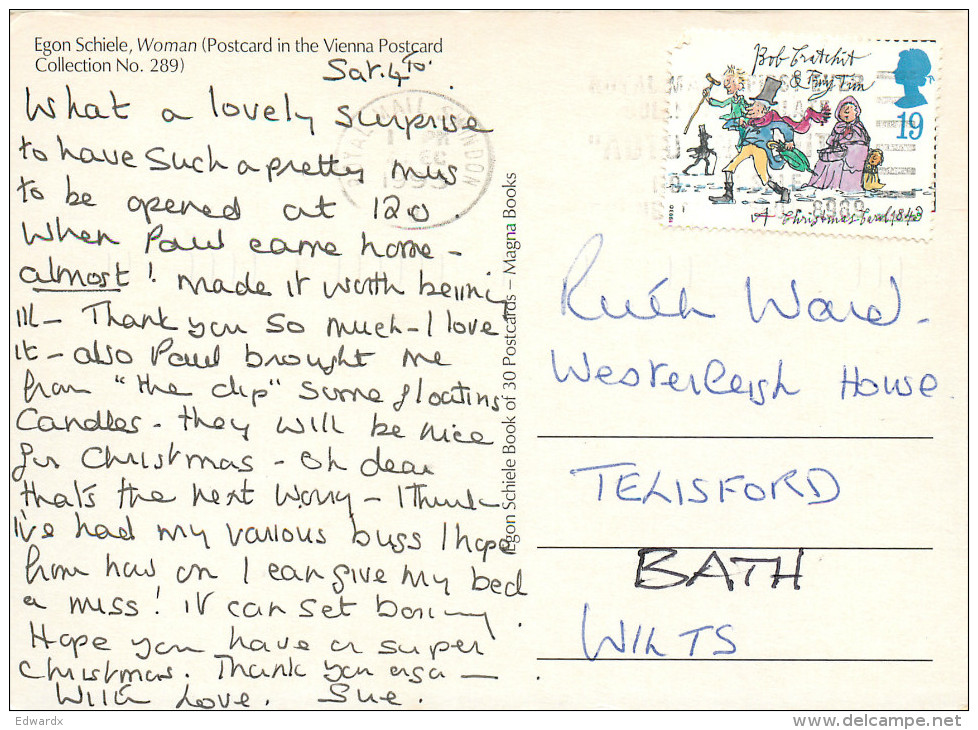 Egon Schiele, Woman (Postcard in the Vienna Postcard
Collection No. 289)
Sat. 4th.
What a lovely surprise
to have such a pretty
to be opened at 120.
When Paul came home –
almost! made it worth being
ill – Thank you so much – I love
it – also Paul brought me
from "the clip" some floating
Candles – they will be nice
for Christmas – Oh dear
that's the next worry – I think
I've had my various bugs I hope
from now on I can give my bed
a miss! it can get boring.
Hope you have a super
Christmas. Thank you again –
With Love. Sue.
Egon Schiele Book of 30 Postcards – Magna Books
Bob Cratchit
& Tiny Tim
19
A Christmas Carol 1843
ROYAL MAIL LONDON
1993
Ruth Ward.
Westerleigh House
TELISFORD
BATH
WILTS
Edwardx
delcampe.net